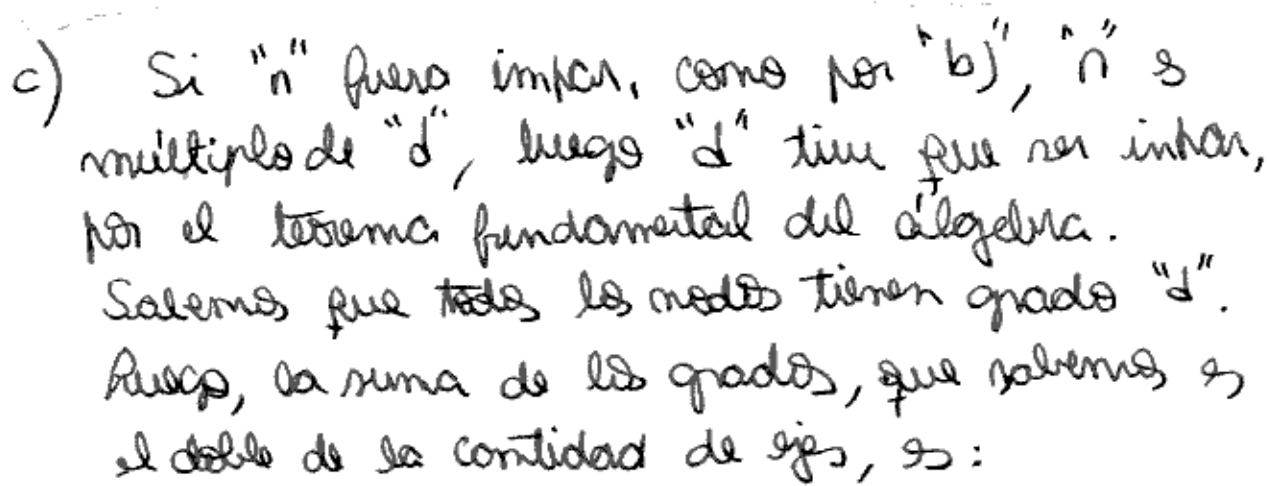 c) Si "n" fuera impar, como por "b)", "n" es
múltiplo de "d", luego "d" tiene que ser impar,
por el teorema fundamental del álgebra.
Sabemos que todos los nodos tienen grado "d".
Luego, la suma de los grados, que sabemos es
el doble de la cantidad de ejes, es: